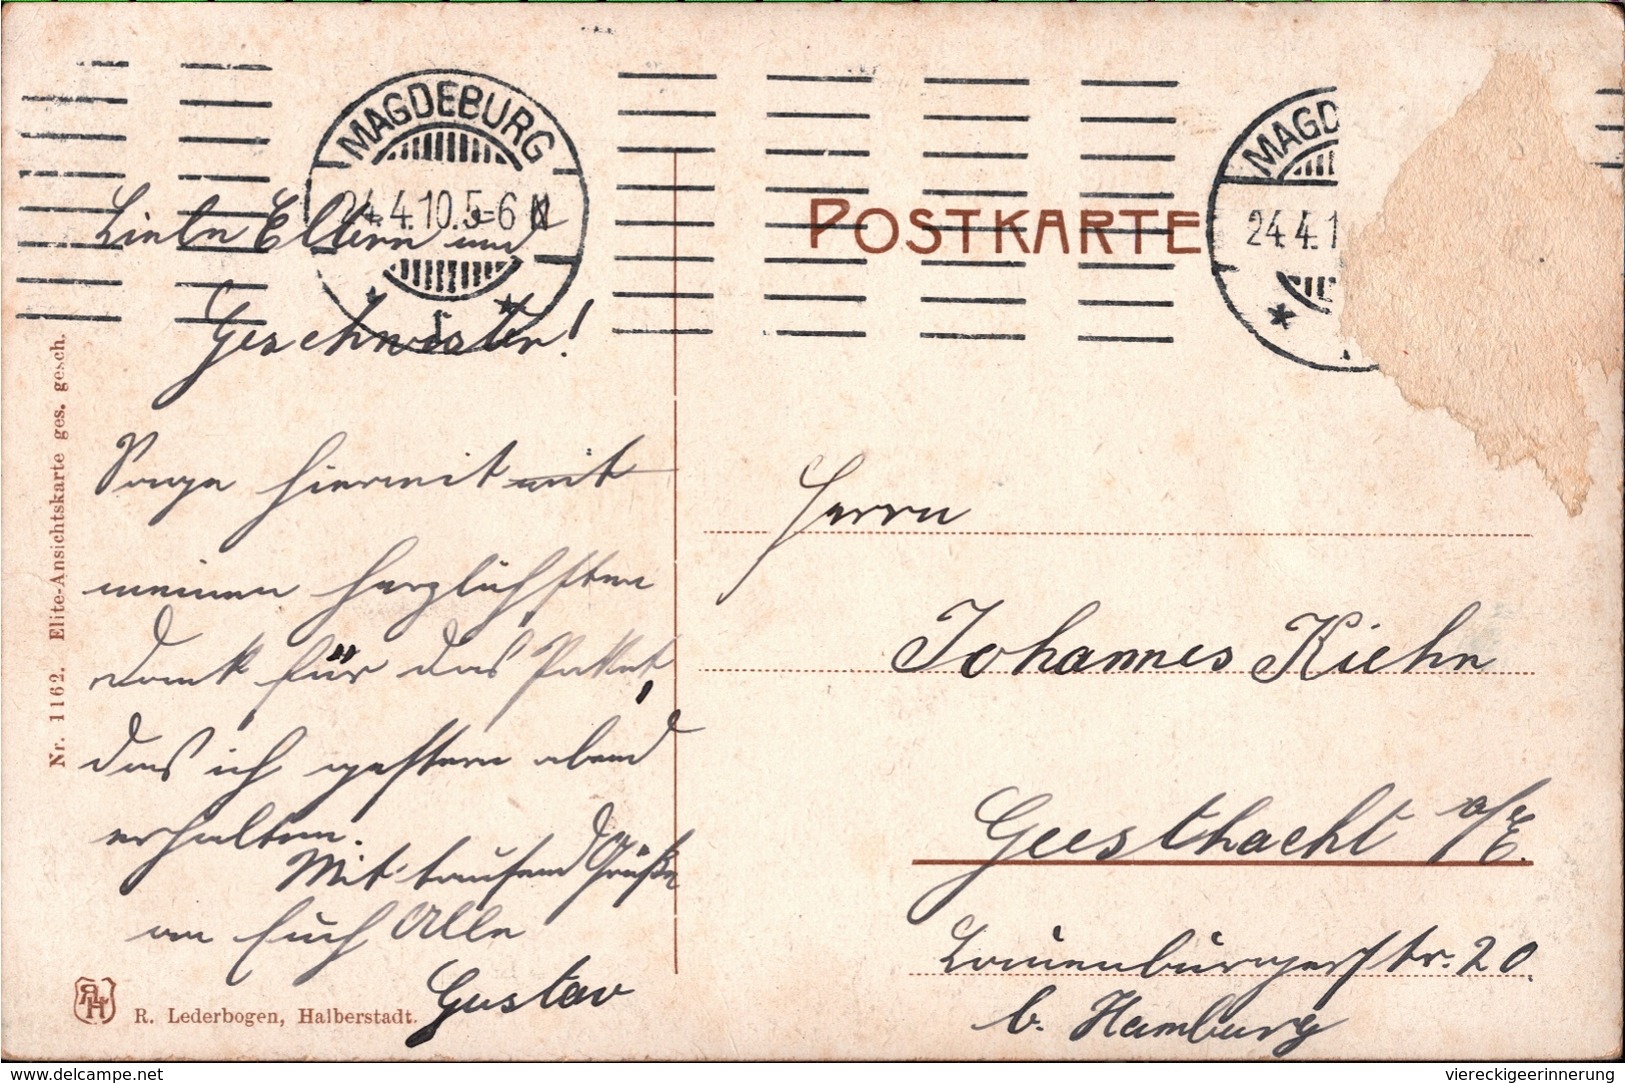 MAGDEBURG
24.4.10.5-6 N
*
*
MAGD
24.4.1
*
POSTKARTE
Lieben Eltern und
Geschwister!
Sage hiermit mit
meinen herzlichsten
Dank für das Paket,
das ich gestern abend
erhalten.
Mit tausend Grüße
an Euch Alle
Gustav
Herrn
Johannes Kiehn
Geesthacht a/E.
Lauenburgerstr. 20.
b. Hamburg
Nr. 1162. Elite-Ansichtskarte ges. gesch.
R. Lederbogen, Halberstadt.
delcampe.net
viereckigeerinnerung